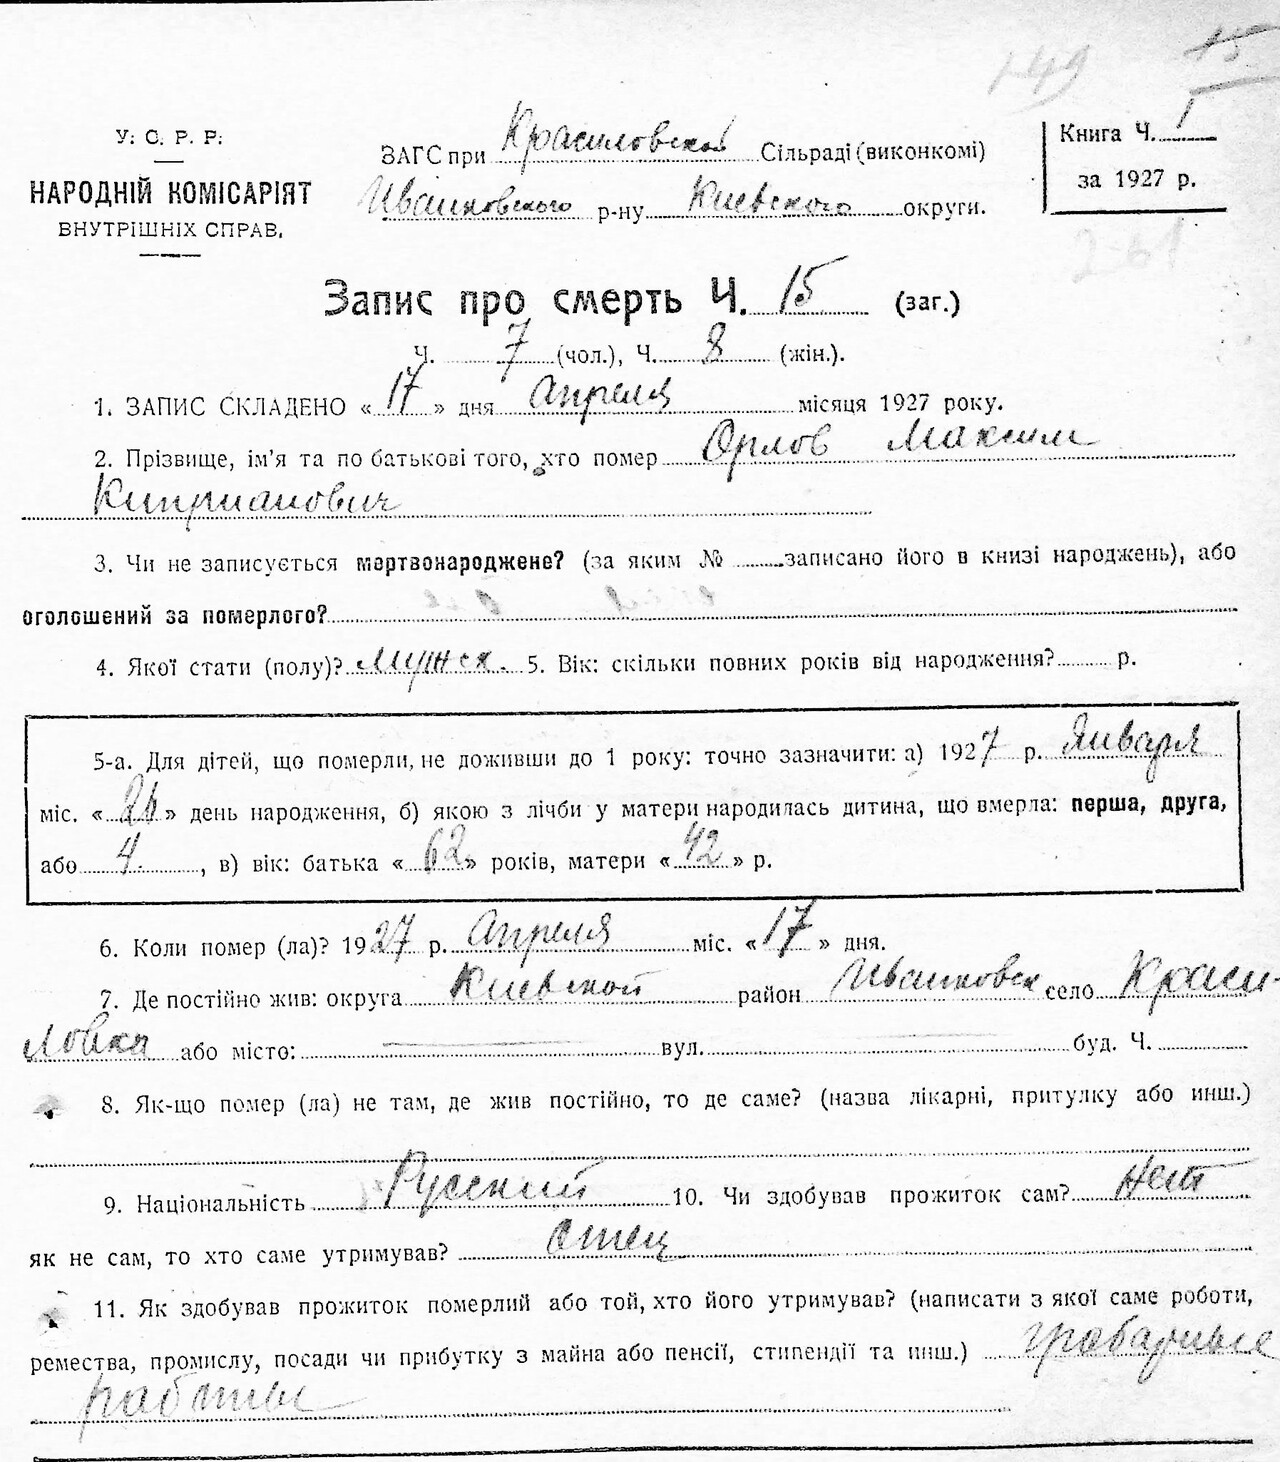 149 15
У. С. Р. Р.
НАРОДНІЙ КОМІСАРІЯТ
ВНУТРІШНІХ СПРАВ.
ЗАГС при Красиловской Сільраді (виконкомі)
Иванковского р-ну Киевского округи.
Книга Ч. 1
за 1927 р.
2-61
Запис про смерть Ч. 15 (заг.)
Ч. 7 (чол.), Ч. 8 (жін.).
1. ЗАПИС СКЛАДЕНО « 17 » дня Апреля місяця 1927 року.
2. Прізвище, ім'я та по батькові того, хто помер Орлов Максим
Киприанович
3. Чи не записується мертвонароджене? (за яким № записано його в книзі народжень), або
оголошений за померлого?
4. Якої стати (полу)? Мужск. 5. Вік: скільки повних років від народження? р.
5-а. Для дітей, що померли, не доживши до 1 року: точно зазначити: а) 1927 р. Января
міс. « » день народження, б) якою з лічби у матери народилась дитина, що вмерла: перша, друга,
або 4. , в) вік: батька « 62 » років, матери « 42 » р.
6. Коли помер (ла)? 1927 р. Апреля міс. « 17 » дня.
7. Де постійно жив: округа Киевской район Иванковск село Краси-
ловка або місто: вул. буд. Ч.
8. Як-що помер (ла) не там, де жив постійно, то де саме? (назва лікарні, притулку або инш.)
9. Національність Русский 10. Чи здобував прожиток сам? Нет
як не сам, то хто саме утримував? Отец
11. Як здобував прожиток померлий або той, хто його утримував? (написати з якої саме роботи,
ремества, промислу, посади чи прибутку з майна або пенсії, стипендії та инш.) грабарные
работы